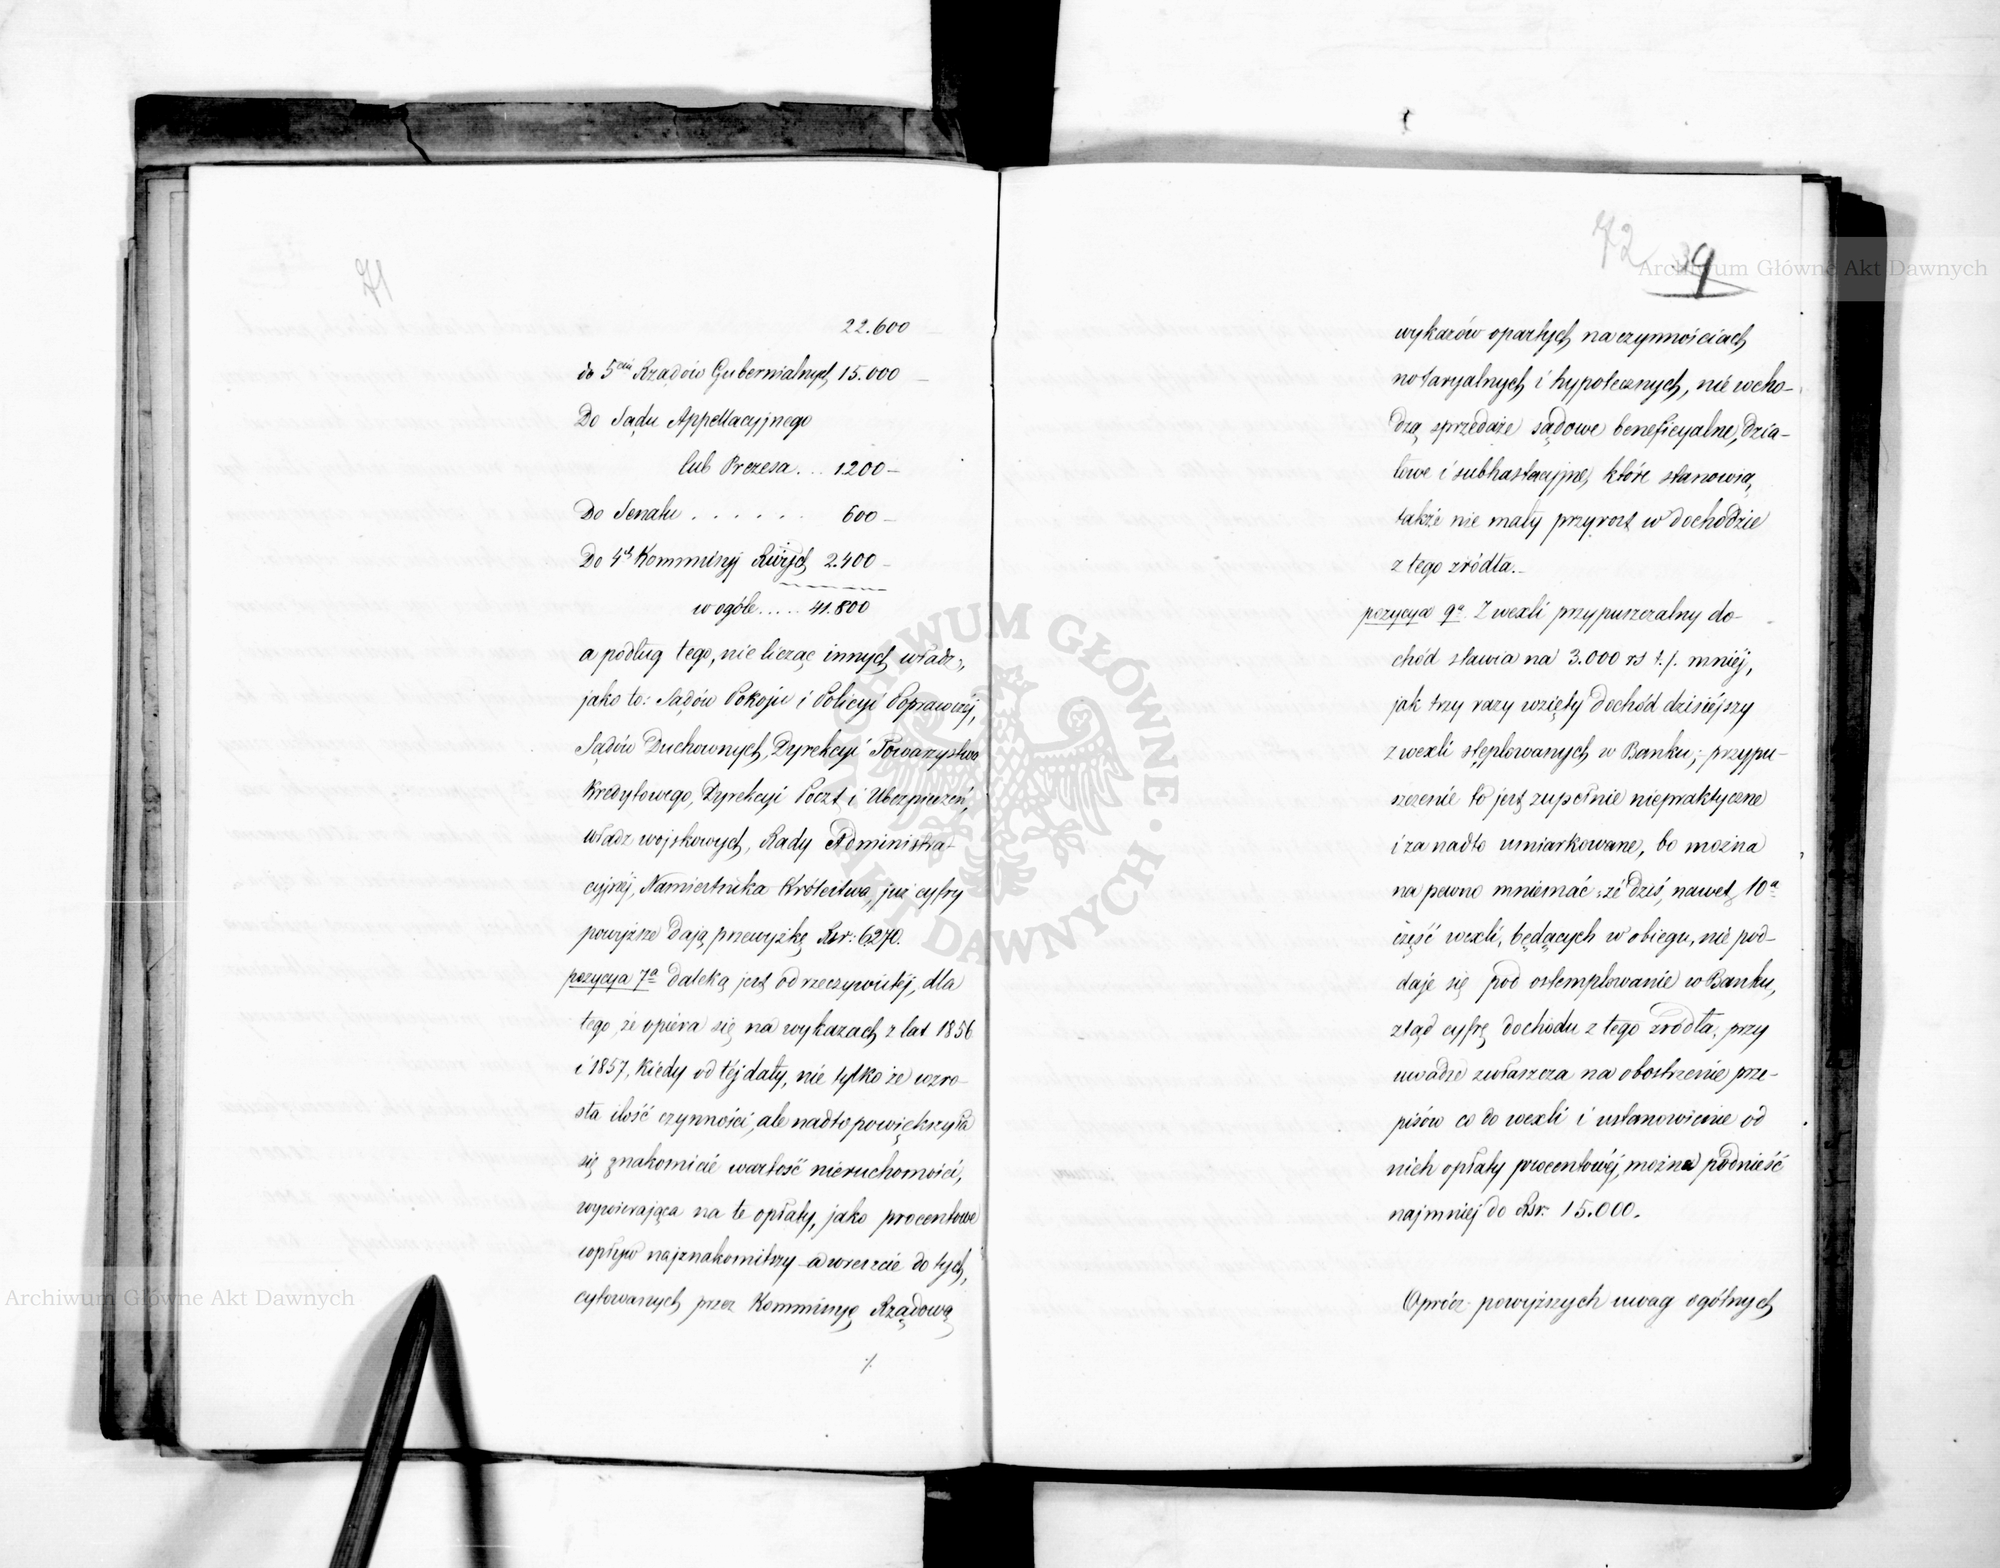 71
22.600
do 5ciu Rządów Gubernialnych 15.000 —
Do Sądu Appellacyjnego
lub Prezesa . . . 1200 —
Do Senatu . . . . . . 600 —
Do 4ch Kommissyj Rząych 2.400 —
w ogóle . . . . . 41.800
a podług tego, nie licząc innych władz,
jako to: Sądów Pokoju i Policyi Poprawczéj,
Sądów Duchownych, Dyrekcyi Towarzystwa
Kredytowego, Dyrekcyi Poczt i Ubezpieczeń,
władz wojskowych, Rady Administra-
cyjnéj, Namiestnika Królestwa, już cyfry
powyższe dają przewyżkę Rsr: 6270.
pozycya 7a daleką jest od rzeczywistéj, dla
tego, że opiera się na wykazach z lat 1856
i 1857, kiedy od téj daty, nie tylko że wzro-
sła ilość czynności, ale nadto powiększyła
się znakomicie wartość nieruchomości,
wywierająca na te opłaty, jako procentowe
wpływ najznakomitszy a wreszcie do tych,
cytowanych przez Kommissyę Rządową
./.
72 39
wykazów opartych na czynnościach
notaryalnych i hypotecznych, nie wcho-
dzą sprzedaże sądowe beneficyalne, dzia-
łowe i subhastacyjne, które stanowią,
także nie mały przyrost w dochodzie
z tego źródła. —
pozycya 9a. Z wexli przypuszczalny do-
chód stawia na 3.000 rs t. j. mniéj,
jak trzy razy wzięty dochód dzisiéjszy
z wexli stęplowanych w Banku; — przypu-
szczenie to jest zupełnie niepraktyczne
i za nadto umiarkowane, bo można
na pewno mniemać, że dziś, nawet 10a
część wexli, będących w obiegu, nie pod-
daje się pod ostemplowanie w Banku,
ztąd cyfrę dochodu z tego źródła, przy
uwadze zwłaszcza na obostrzenie prze-
pisów co do wexli i ustanowienie od
nich opłaty procentowéj, można podnieść
najmniej do Rsr: 15.000.
Oprócz powyższych uwag ogólnych
Archiwum Główne Akt Dawnych
Archiwum Główne Akt Dawnych
ARCHIWUM GŁÓWNE AKT DAWNYCH